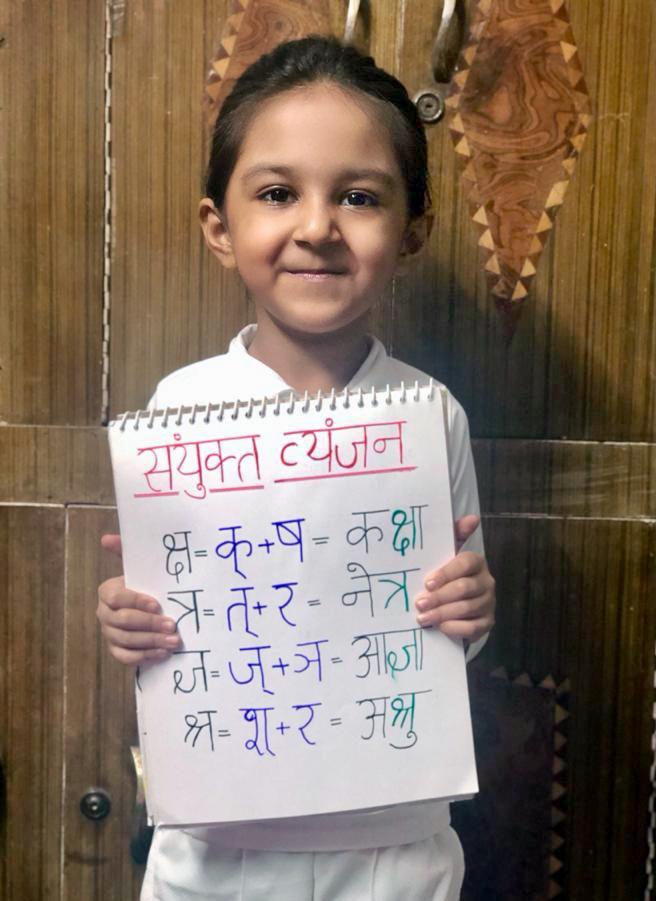 संयुक्त व्यंजन
क्ष = क् + ष = कक्षा
त्र = त् + र = नेत्र
ज्ञ = ज् + ञ = आज्ञा
श्र = श् + र = अश्रु